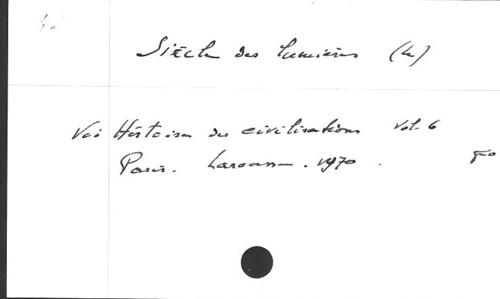 Siècle des lumières (le)
Voir Histoire des civilisations vol. 6
Paris. Larousse. 1970.